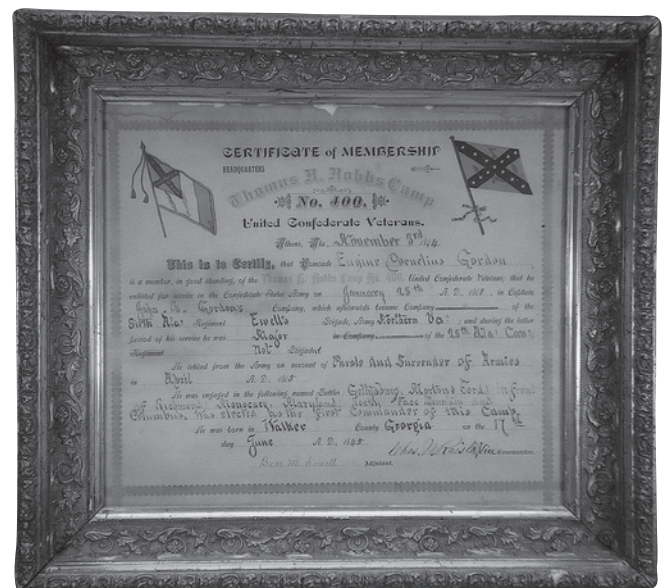 CERTIFICATE of MEMBERSHIP
HEADQUARTERS
Thomas H. Hobbs Camp
No. 400.
United Confederate Veterans.
Athens, Ala. November 3rd
This is to Certify, that Comrade Eugine Cornelius Gordon
is a member, in good standing, of the Thomas H. Hobbs Camp No. 400, United Confederate Veterans, that he
enlisted for service in the Confederate States Army on January 28th A. D. 1861, in Captain
John B. Gordon's Company, which afterwards became Company of the
Sixth Ala: Regiment Ewell's Brigade, Army Northern Va: ; and during the latter
period of his service he was Major in Company of the 28th Ala: Cav:
Regiment Not Brigaded
He retired from the Army on account of Parole and Surrender of Armies
in April A. D. 1865
He was engaged in the following named Battles: Gettysburg, Mortons Ford: in front
of Richmond, Monocacy, Maryland and
Columbus, was elected as the First Commander of this Camp.
He was born in Walker County Georgia on the 17th
day June A. D. 1845
Commander.
Ben M. Sowell Adjutant.